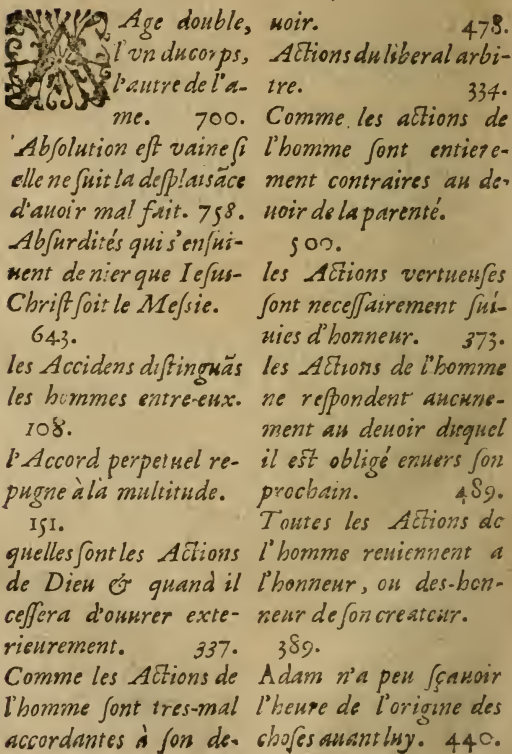 Age double,
l'vn ducorps,
l'autre de l'a-
me. 700.
Absolution est vaine si
elle ne suit la desplaisāce
d'auoir mal fait. 758.
Absurdités qui s'ensui-
uent de nier que Iesus-
Christ soit le Messie.
643.
les Accidens distinguās
les hommes entre-eux.
108.
l'Accord perpetuel re-
pugne à là multitude.
151.
quelles sont les Actions
de Dieu & quand il
cessera d'ouurer exte-
rieurement. 337.
Comme les Actions de
l'homme sont tres-mal
accordantes à son de-
uoir. 478.
Actions du liberal arbi-
tre. 334.
Comme les actions de
l'homme sont entiere-
ment contraires au de-
uoir de la parenté.
500.
les Actions vertueuses
sont necessairement sui-
uies d'honneur. 373.
les Actions de l'homme
ne respondent aucune-
ment au deuoir duquel
il est obligé enuers son
prochain. 489.
Toutes les Actions de
l'homme reuiennent a
l'honneur, ou des-hon-
neur de son createur.
389.
Adam n'a peu sçauoir
l'heure de l'origine des
choses auant luy. 440.